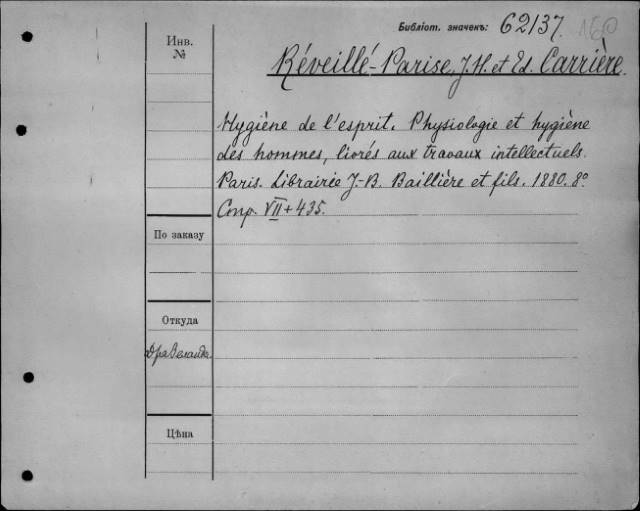 Библіот. значекъ: 62137. 160
Инв. №
Réveillé-Parise, J.H. et Ed. Carrière.
Hygiène de l'esprit. Physiologie et hygiène
des hommes, livrés aux travaux intellectuels.
Paris. Librairie J.-B. Baillière et fils. 1880. 8º
Стр. VII+435.
По заказу
Откуда
Цѣна